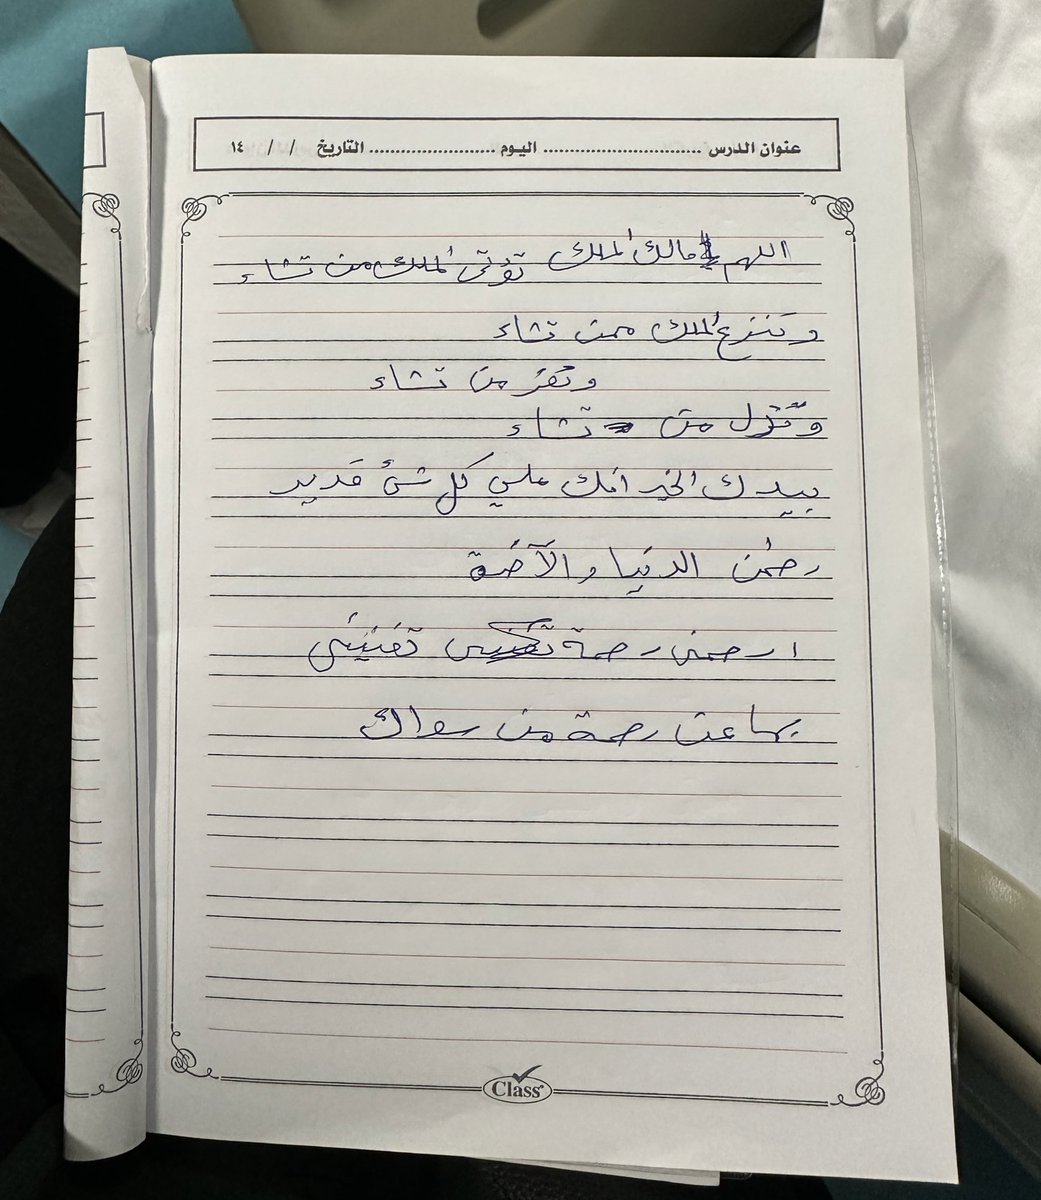 عنوان الدرس ........................ اليوم .................... التاريخ / / ١٤
اللهم مالك الملك تؤتى الملك من تشاء
وتنزع الملك ممن تشاء
وتعز من تشاء
وتذل من تشاء
بيدك الخير انك على كل شئ قدير
رحمن الدنيا والآخرة
ارحمنى رحمة تغنينى
بها عن رحمة من سواك
Class